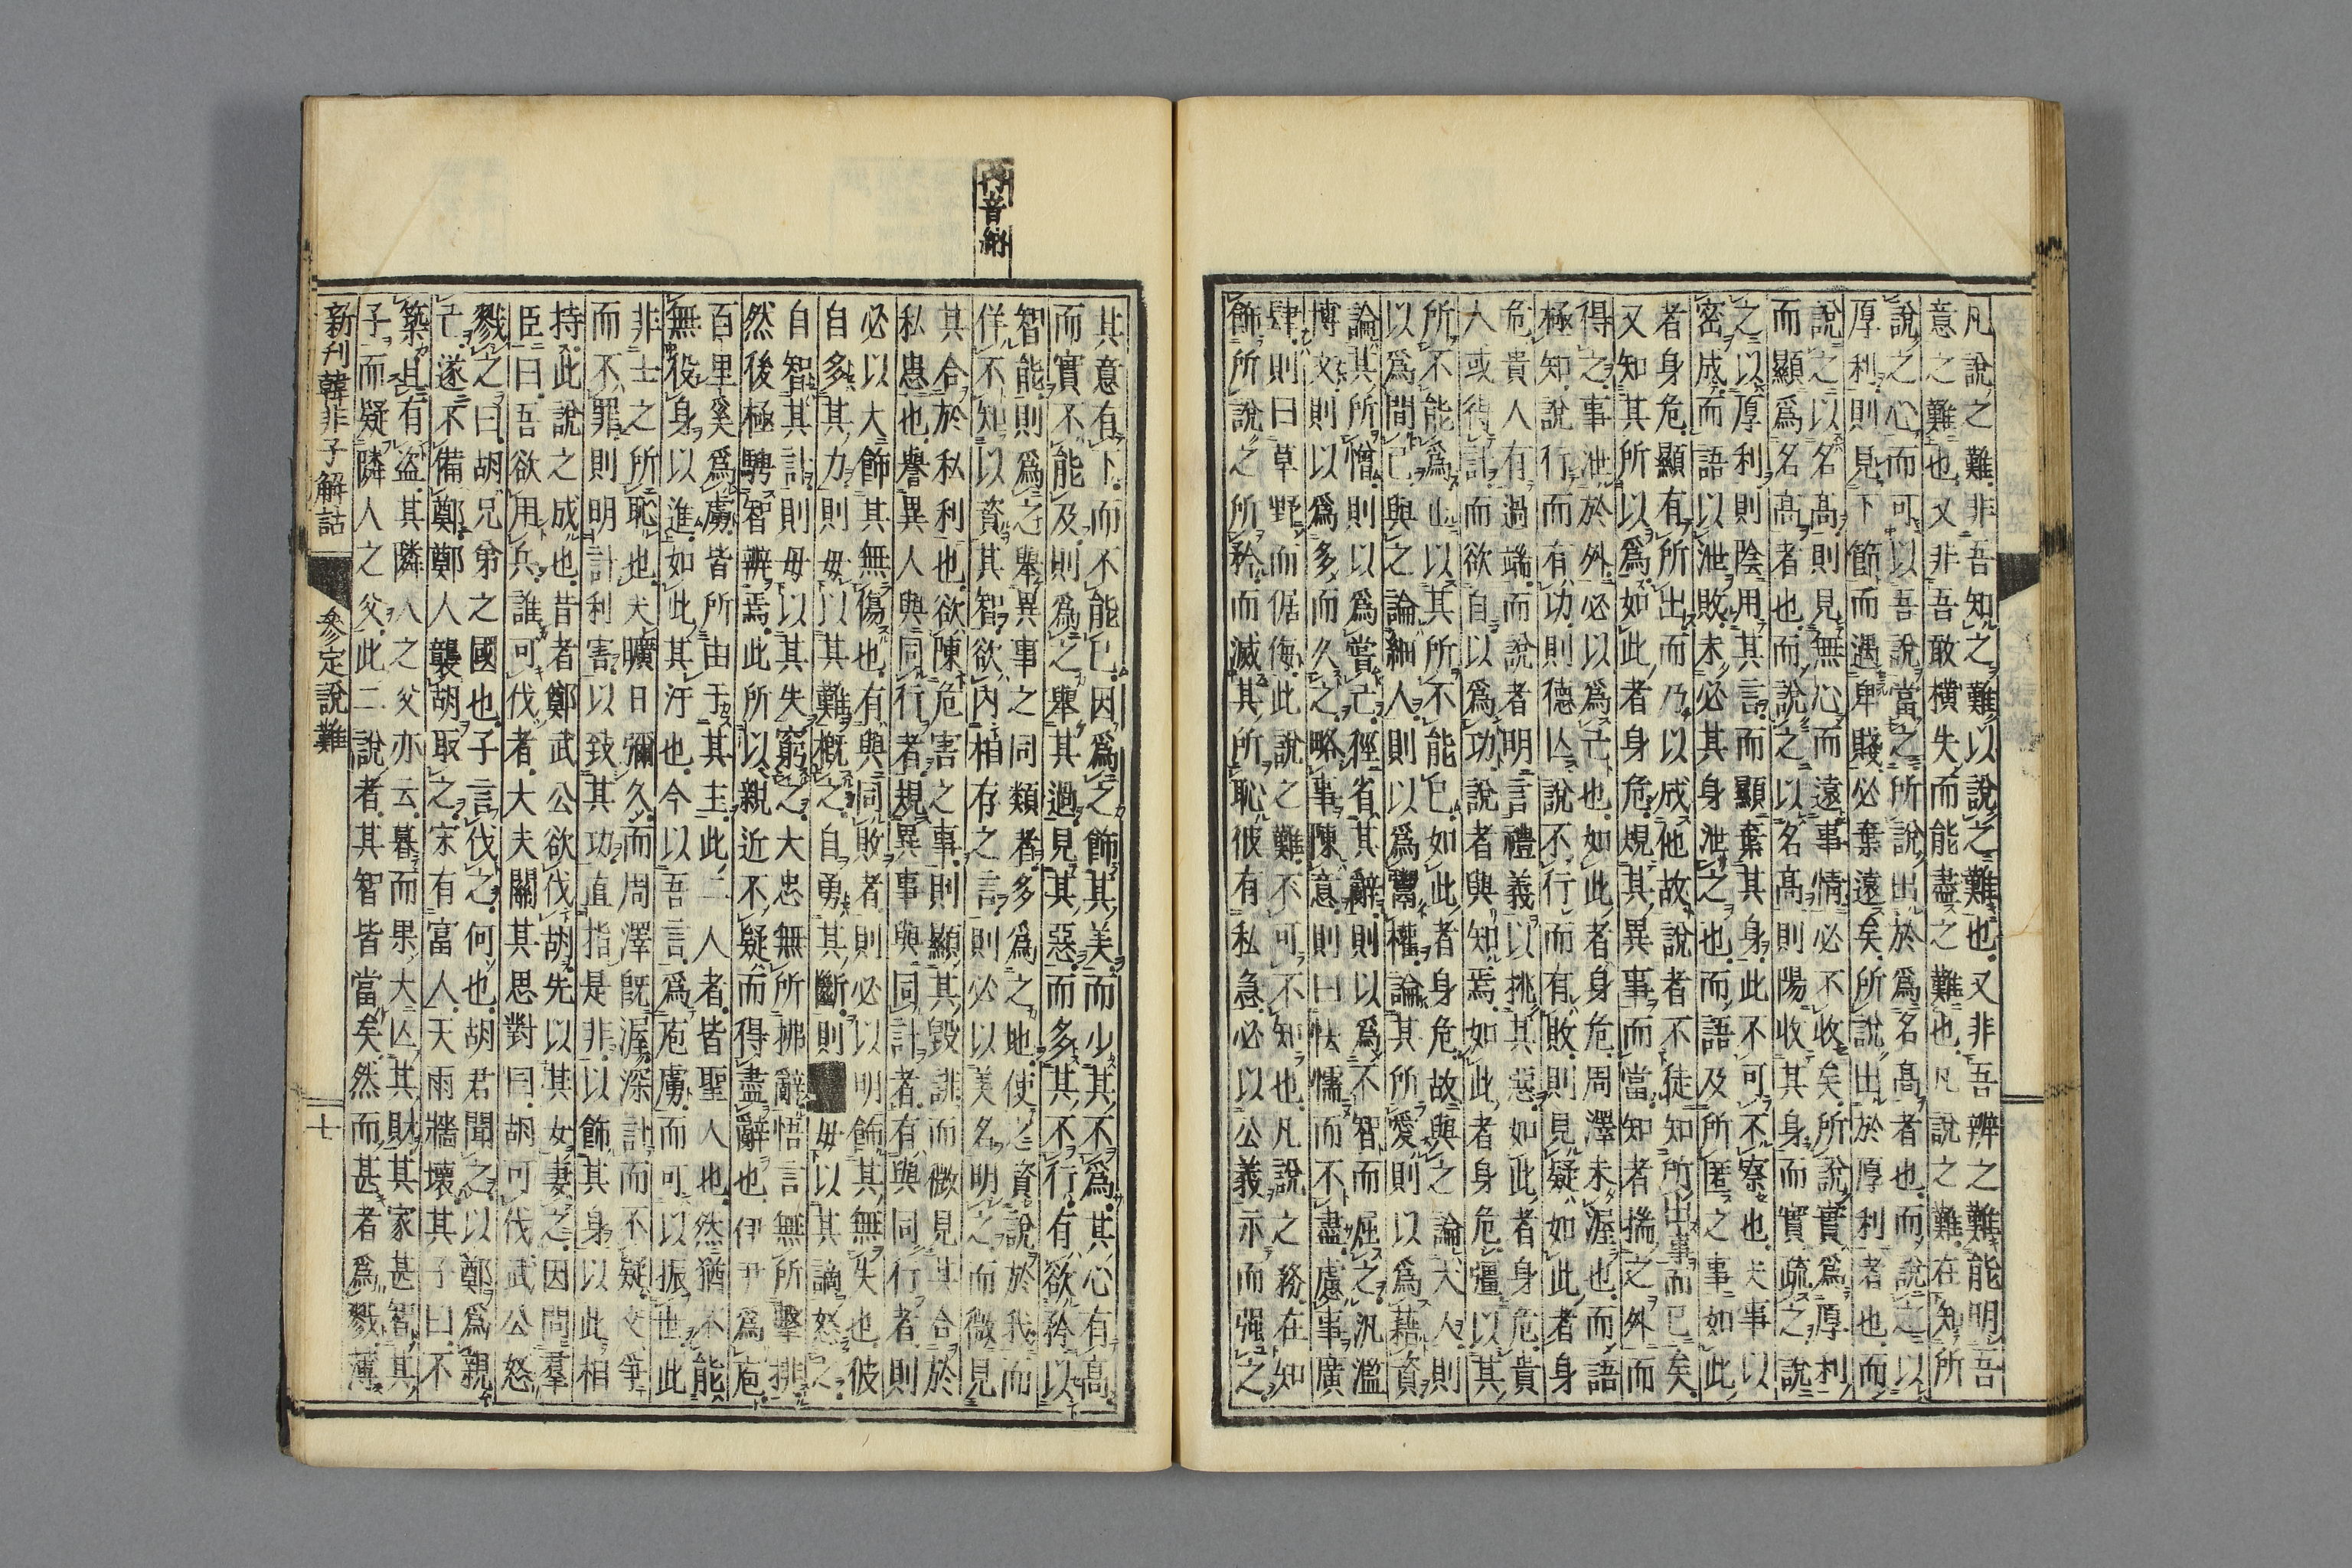 凡說之難非吾知之難以說之難也又非吾辨之難能明吾
意之難也又非吾敢橫失而能盡之難也凡說之難在知所
說之心而可以吾說當之所說出於爲名高者也而說之以
厚利則見下節而遇卑賤必棄遠矣所說出於厚利者也而
說之以名高則見無心而遠事情必不收矣所說實爲厚利
而顯爲名高者也而說之以名高則陽收其身而實疏之說
之以厚利則陰用其言而顯棄其身此不可不察也夫事以
密成而語以泄敗未必其身泄之也而語及所匿之事如此
者身危顯有所出而乃以成他故說者不徒知所出事而已矣
又知其所以爲如此者身危規其異事而當知者揣之外而
得之事泄於外必以爲己也如此者身危周澤未渥也而語
極知說行而有功則德亡說不行而有敗則見疑如此者身
危貴人有過端而說者明言禮義以挑其惡如此者身危貴
人或得計而欲自以爲功說者與知焉如此者身危彊以其
所不能爲止以其所不能已如此者身危故與之論大人則
以爲間己與之論細人則以爲鬻權論其所愛則以爲藉資
論其所憎則以爲嘗己徑省其辭則以爲不智而屈之汎濫
博文則以爲多而久之略事陳意則曰怯懦而不盡慮事廣
肆則曰草野而倨侮此說之難不可不知也凡說之務在知
飾所說之所矜而滅其所恥彼有私急必以公義示而强之
內音納
其意有下而不能已因爲之飾其美而少其不爲其心有高
而實不能及則爲之舉其過見其惡而多其不行有欲矜以
智能則爲之舉異事之同類者多爲之地使之資說於我而
佯不知以資其智欲內相存之言則必以美名明之而微見
其合於私利也欲陳危害之事則顯其毀誹而微見其合於
私患也譽異人與同行者規異事與同計者有與同行者則
必以大飾其無傷也有與同敗者則必以明飾其無失也彼
自多其力則毋以其難概之自勇其斷則■毋以其謫怒之
自智其計則毋以其失窮之大忠無所拂辭悟言無所擊排
然後極騁智辨焉此所以親近不疑而得盡辭也伊尹爲庖
百里奚爲虜皆所由于其主此二人者皆聖人也然猶不能
無役身以進如此其汙也今以吾言爲庖虜而可以振世此
非士之所恥也夫曠日彌久而周澤旣渥深計而不疑交爭
而不罪則明計利害以致其功直指是非以飾其身以此相
持此說之成也昔者鄭武公欲伐胡先以其女妻之因問羣
臣曰吾欲用兵誰可伐者大夫關其思對曰胡可伐武公怒
戮之曰胡兄弟之國也子言伐之何也胡君聞之以鄭爲親
己遂不備鄭鄭人襲胡取之宋有富人天雨牆壞其子曰不
築且有盜其隣人之父亦云暮而果大亡其財其家甚智其
子而疑隣人之父此二說者其智皆當矣然而甚者爲戮薄
新刋韓非子解詁　參定說難　十